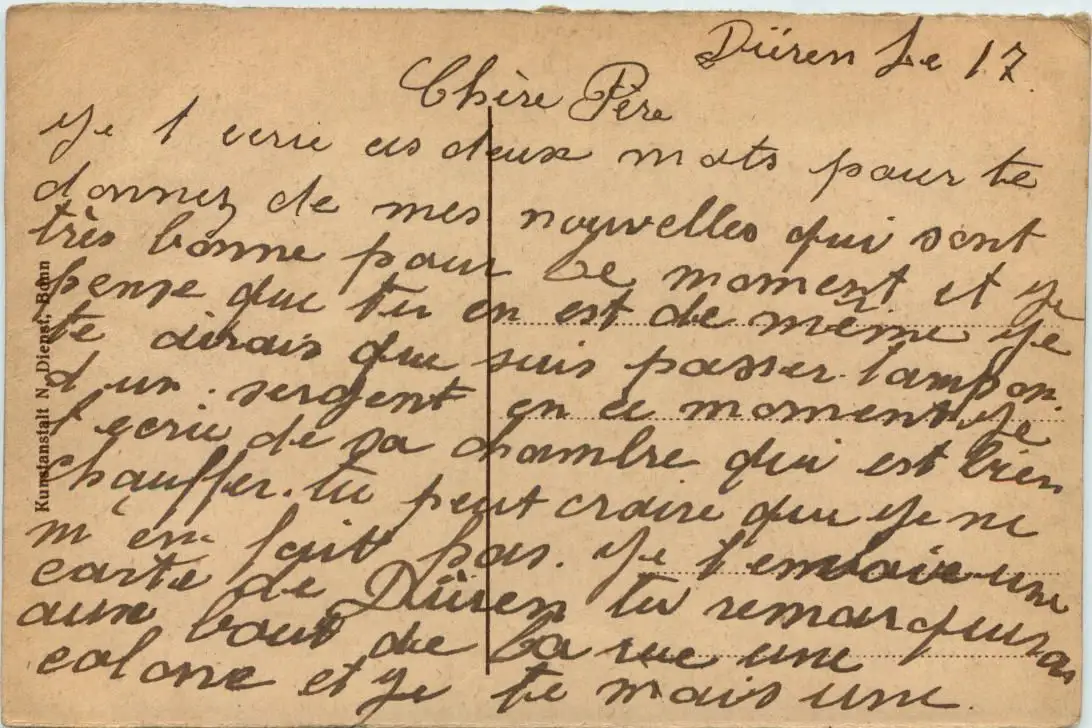 Düren Le 17
Chère Père
Je t ecrie ces deux mots pour te
donnez de mes nouvelles qui sont
très bonne pour le moment et je
pense que tu en est de même je
te dirais que suis passer tampon
d un sergent en ce moment je
t ecrie de sa chambre qui est bien
chauffer. tu peut craire que je ne
m'en fait pas. je t'envoie une
carte de Düren tu remarqueras
aux bout de la rue une
colone et je te mais une
Kunstanstalt N. Dienst, Bonn